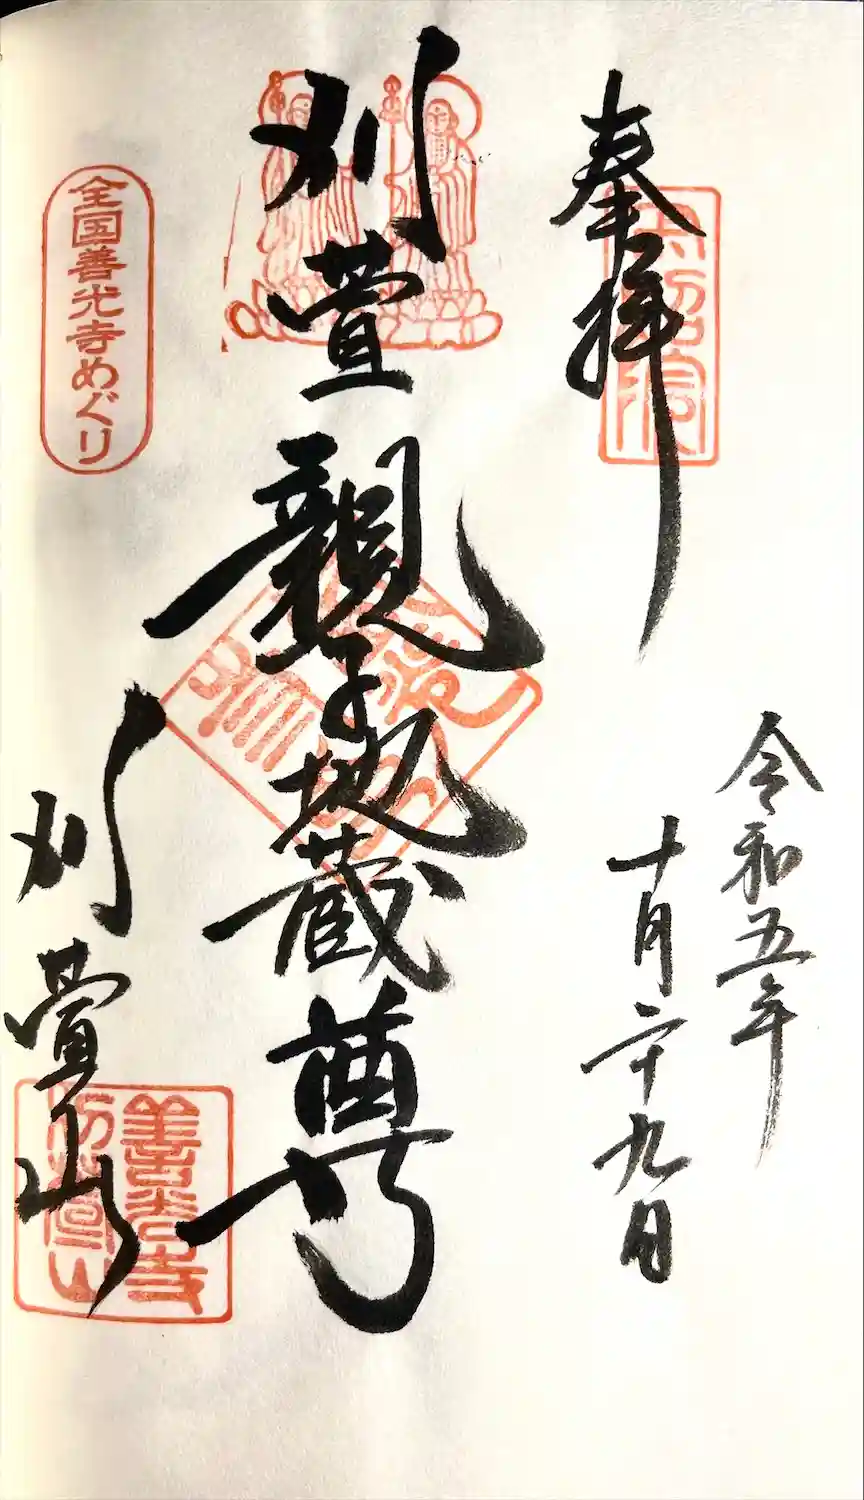 奉拝
令和五年
十月二十九日
刈萱親子地蔵尊
刈萱山
全国善光寺めぐり
善光寺
刈萱山